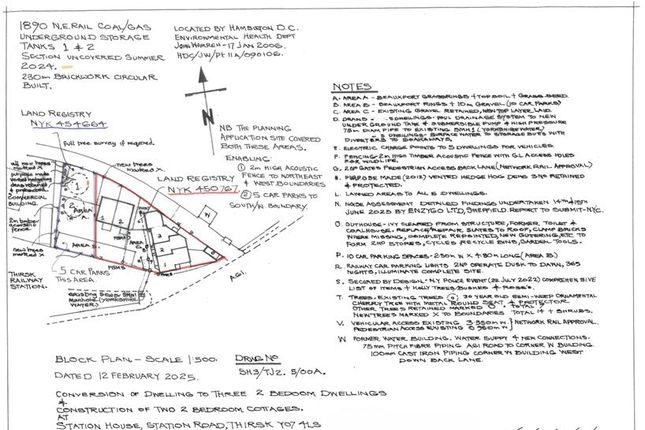 1890 N.E. RAIL COAL/GAS
UNDERGROUND STORAGE
TANKS 1 & 2
SECTION UNCOVERED SUMMER
2024.
230m BRICKWORK CIRCULAR
BUILT.
LOCATED BY HAMBLETON D.C.
ENVIRONMENTAL HEALTH DEPT
17 JAN 2006.
HDC/JW/PT IIA/090106.
N
NB THE PLANNING
APPLICATION SITE COVERED
BOTH THESE AREAS.
ENABLING
① 2m HIGH ACOUSTIC
FENCE TO NORTHEAST
& WEST BOUNDARIES
② 5 CAR PARKS TO
SOUTH/W BOUNDARY
LAND REGISTRY
NYK 454664
Full tree survey if required.
new trees
marked x
LAND REGISTRY
NYK 450767
COMMERCIAL
BUILDING
new trees
marked x
THIRSK
RAILWAY
STATION.
5 CAR PARKS
THIS AREA
W
AGI.
WATER)
NOTES
A. AREA A - BEAUXPORT GRASSRINGS + TOP SOIL + GRASS SEED.
B. AREA B - BEAUXPORT RINGS + 10m GRAVEL (10 CAR PARKS)
C. AREA C - EXISTING GRAVEL RETAINED, NEW TOP LAYER LAID
D. DRAINS - DWELLINGS - FOUL DRAINAGE SYSTEM TO NEW
UNDER GROUND TANK & SUBMERSIBLE PUMP & HIGH PRESSURE
75m DIAM PIPE TO EXISTING (YORKSHIRE WATER)
DWELLINGS - SURFACE WATER TO STORAGE BUTTS WITH
DIVERTERS TO SOAKAWAYS.
E. ELECTRIC CHARGE POINTS TO 5 DWELLINGS FOR VEHICLES
F. FENCING - 2m HIGH TIMBER ACOUSTIC FENCE WITH GL ACCESS HOLES
FOR WILDLIFE.
ACCESS BACK LANE (NETWORK RAIL APPROVAL)
H. PURPOSE MADE (2013) VENTED HEDGE HOG DENS 3No RETAINED
& PROTECTED.
L. LAYNED AREAS TO ALL 5 DWELLINGS.
N. NOISE ASSESSMENT DETAILED FINDINGS UNDERTAKEN
JUNE 2023 BY ENZYGO LTD, SHEFFIELD REPORT TO SUBMIT-NYC.
O. OUTHOUSE - IVY CLEARED FROM STRUCTURE, FORMER TOILET &
COALHOUSE. REPLACE/REPAIR SLATES TO ROOF, CLAMP BRICKS
WHERE MISSING, COMPLETE REPOINTED, NEW GUTTERING, ETC TO
FORM 2No STORES, CYCLES RECYCLE BINS, GARDEN TOOLS.
P. 10 CAR PARKING SPACES - 2.50m W x 4.80m LONG (AREA B)
R. RAILWAY CAR PARKING LIGHTS 2No OPERATE DUSK TO DAWN, 365
NIGHTS, ILLUMINATE COMPLETE SITE.
S. SECURED BY DESIGN - NY POLICE EVENT (22 JULY 2022) COMPREHENSIVE
LIST OF ITEMS
T. TREES - EXISTING TREES 30 YEAR OLD SEMI-WEEP ORNAMENTAL
CHERRY TREE WITH METAL ROUND SEAT & PROTECTOR
OTHER TREES RETAINED MARKED O. TOTAL 7
NEW TREES MARKED X TO BOUNDARIES TOTAL 14 + SHRUBS.
V. VEHICULAR ACCESS EXISTING 3.350m W } NETWORK RAIL APPROVAL
PEDESTRIAN ACCESS EXISTING 0.960m W
W FORMER WATER BUILDING. WATER SUPPLY & NEW CONNECTIONS.
75mm PITCH FIBRE PIPING AGI ROAD TO CORNER W BUILDING
100mm CAST IRON PIPING CORNER W BUILDING WEST
DOWN BACK LANE.
BLOCK PLAN - SCALE 1:500.
DRWG No
SH3/TJ2. 5/00A.
DATED 12 FEBRUARY 2025.
CONVERSION OF DWELLING TO THREE 2 BEDOOM DWELLINGS
&
CONSTRUCTION OF TWO 2 BEDROOM COTTAGES.
AT
STATION HOUSE, STATION ROAD, THIRSK YO7 4LS